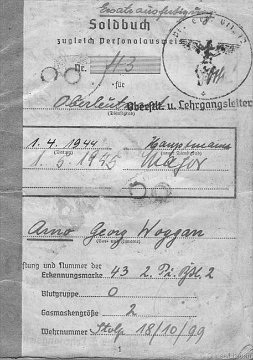 Ersatzausfertigung
Soldbuch
zugleich Personalausweis
Nr. 43
für
Oberleut Oberstlt. u. Lehrgangsleiter
(Dienstgrad)
1. 4. 1944 Hauptmann
(Datum)
1. 5. 1945 Major
Arno Georg Woggan
(Vor- und Zuname)
Nummer der
Erkennungsmarke 43 2. Pi.
Blutgruppe O
Gasmaskengröße 2
Wehrnummer Stolp 18/10/99
1